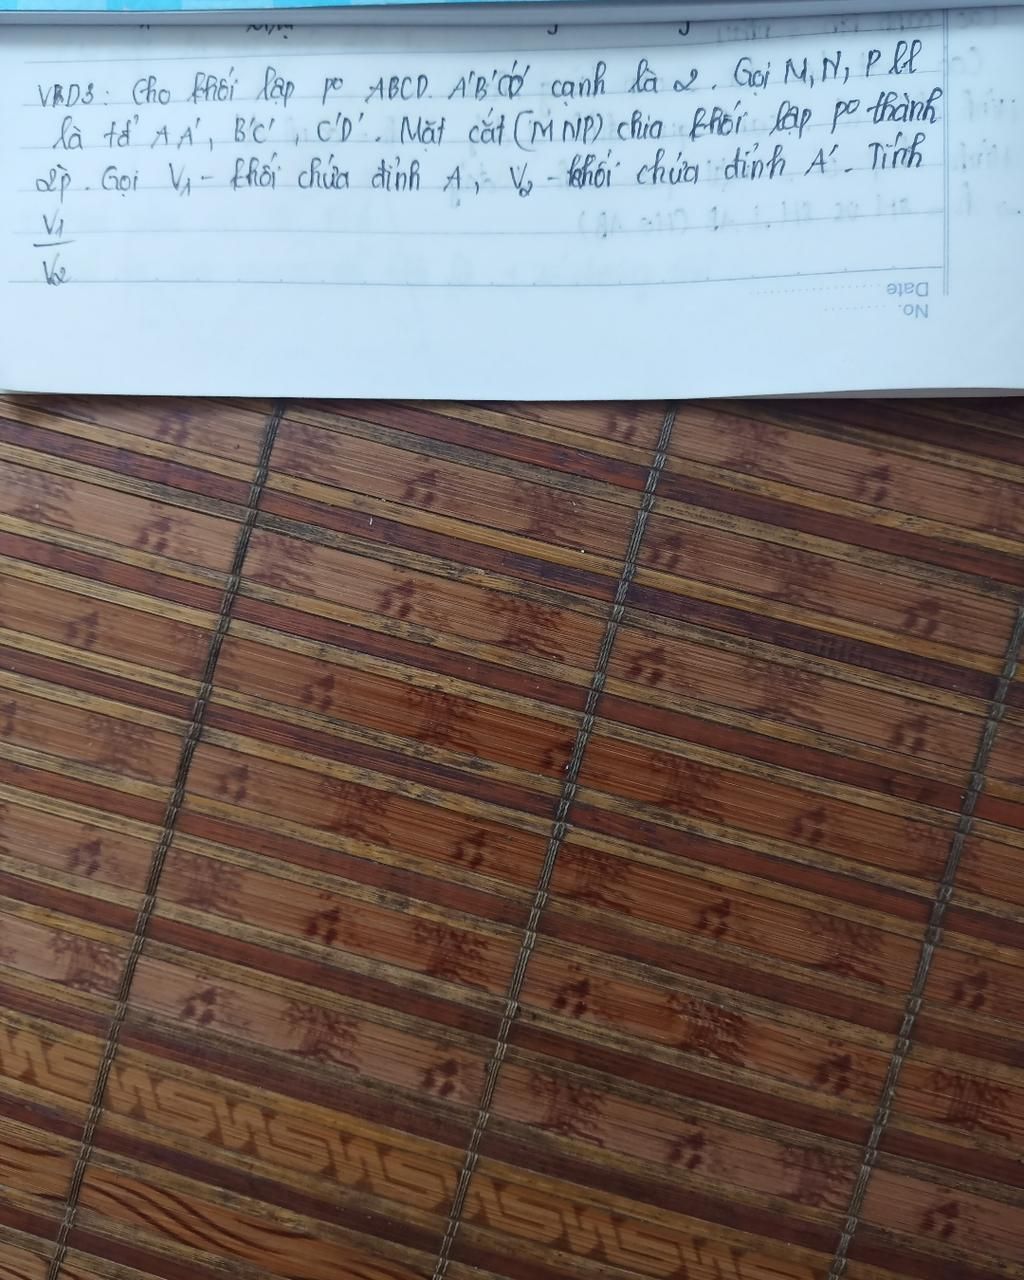 VBD3: Cho khối lập po ABCD. A'B'C'D' cạnh là 2. Gọi M, N, P ll
là tđ' AA', B'C', C'D'. Mặt cắt (MNP) chia khối lập po thành
2p. Gọi V1 - khối chứa đỉnh A, V2 - khối chứa đỉnh A'. Tính
V1
V2
Date
No.